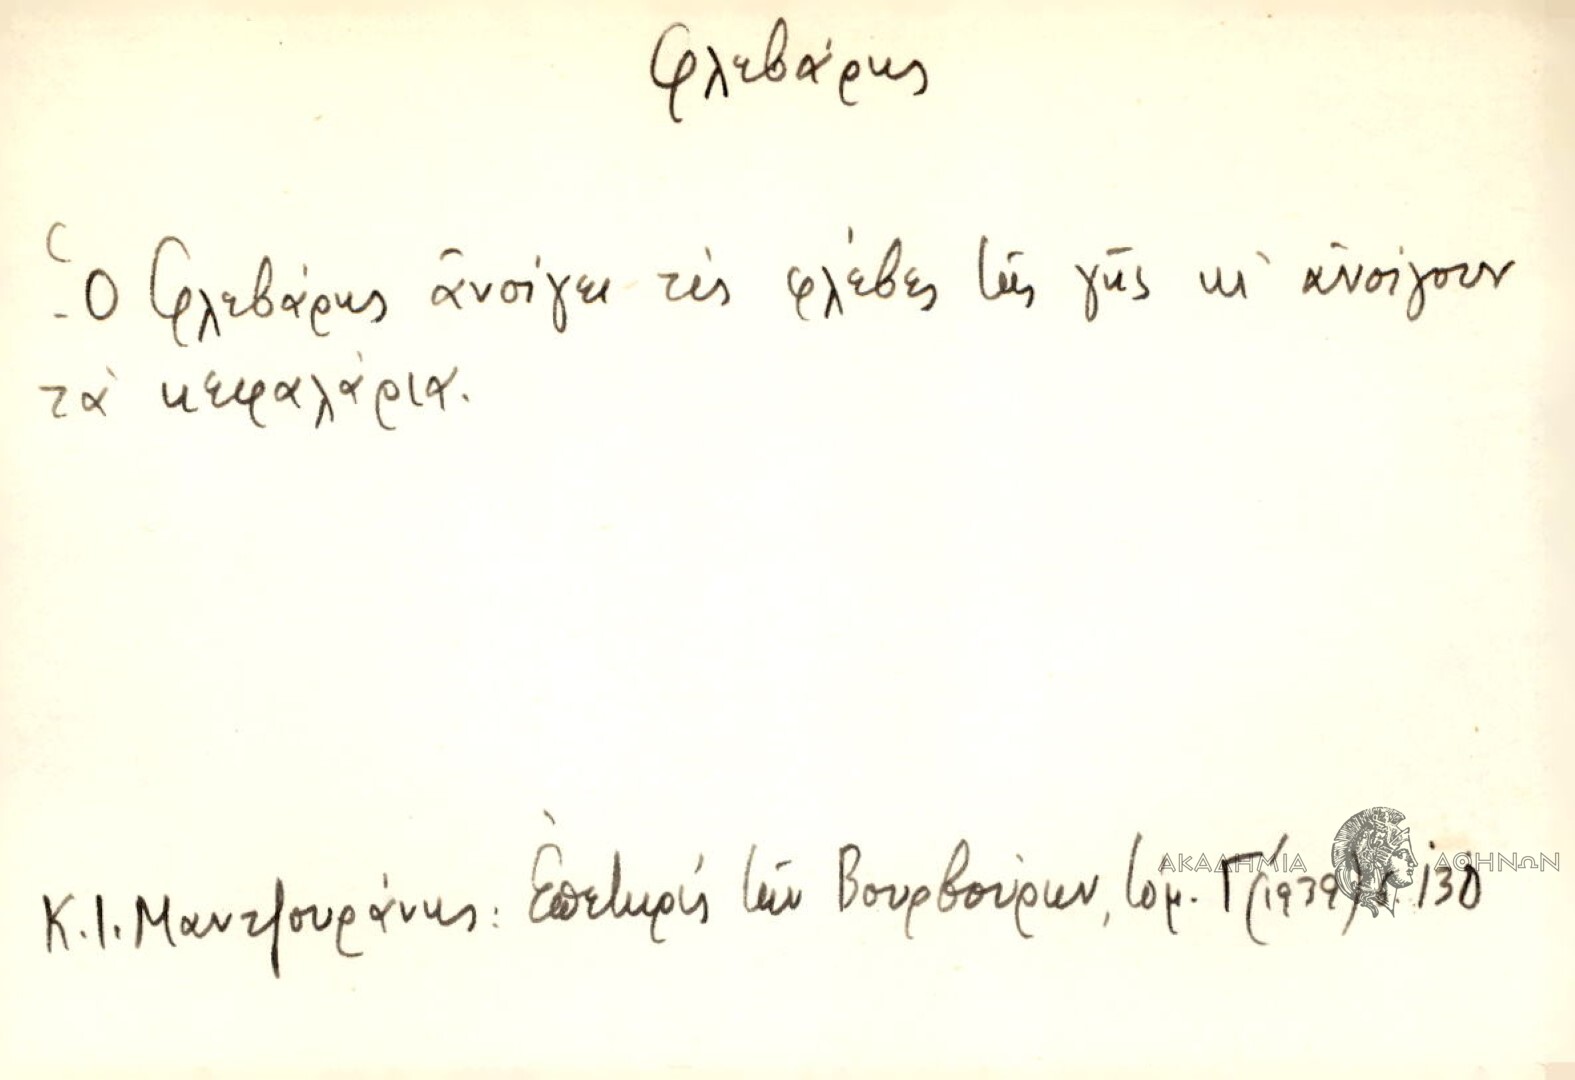 Φλεβάρης
Ὁ Φλεβάρης ἀνοίγει τὶς φλέβες τῆς γῆς κι' ἀνοίγουν
τὰ κεφαλάρια.
Κ.Ι. Μαντζουράνης: Ἐπετηρίς τῶν Βουρβούρων, τομ. Γ΄(1939) σ. 130
ΑΚΑΔΗΜΙΑ ΑΘΗΝΩΝ